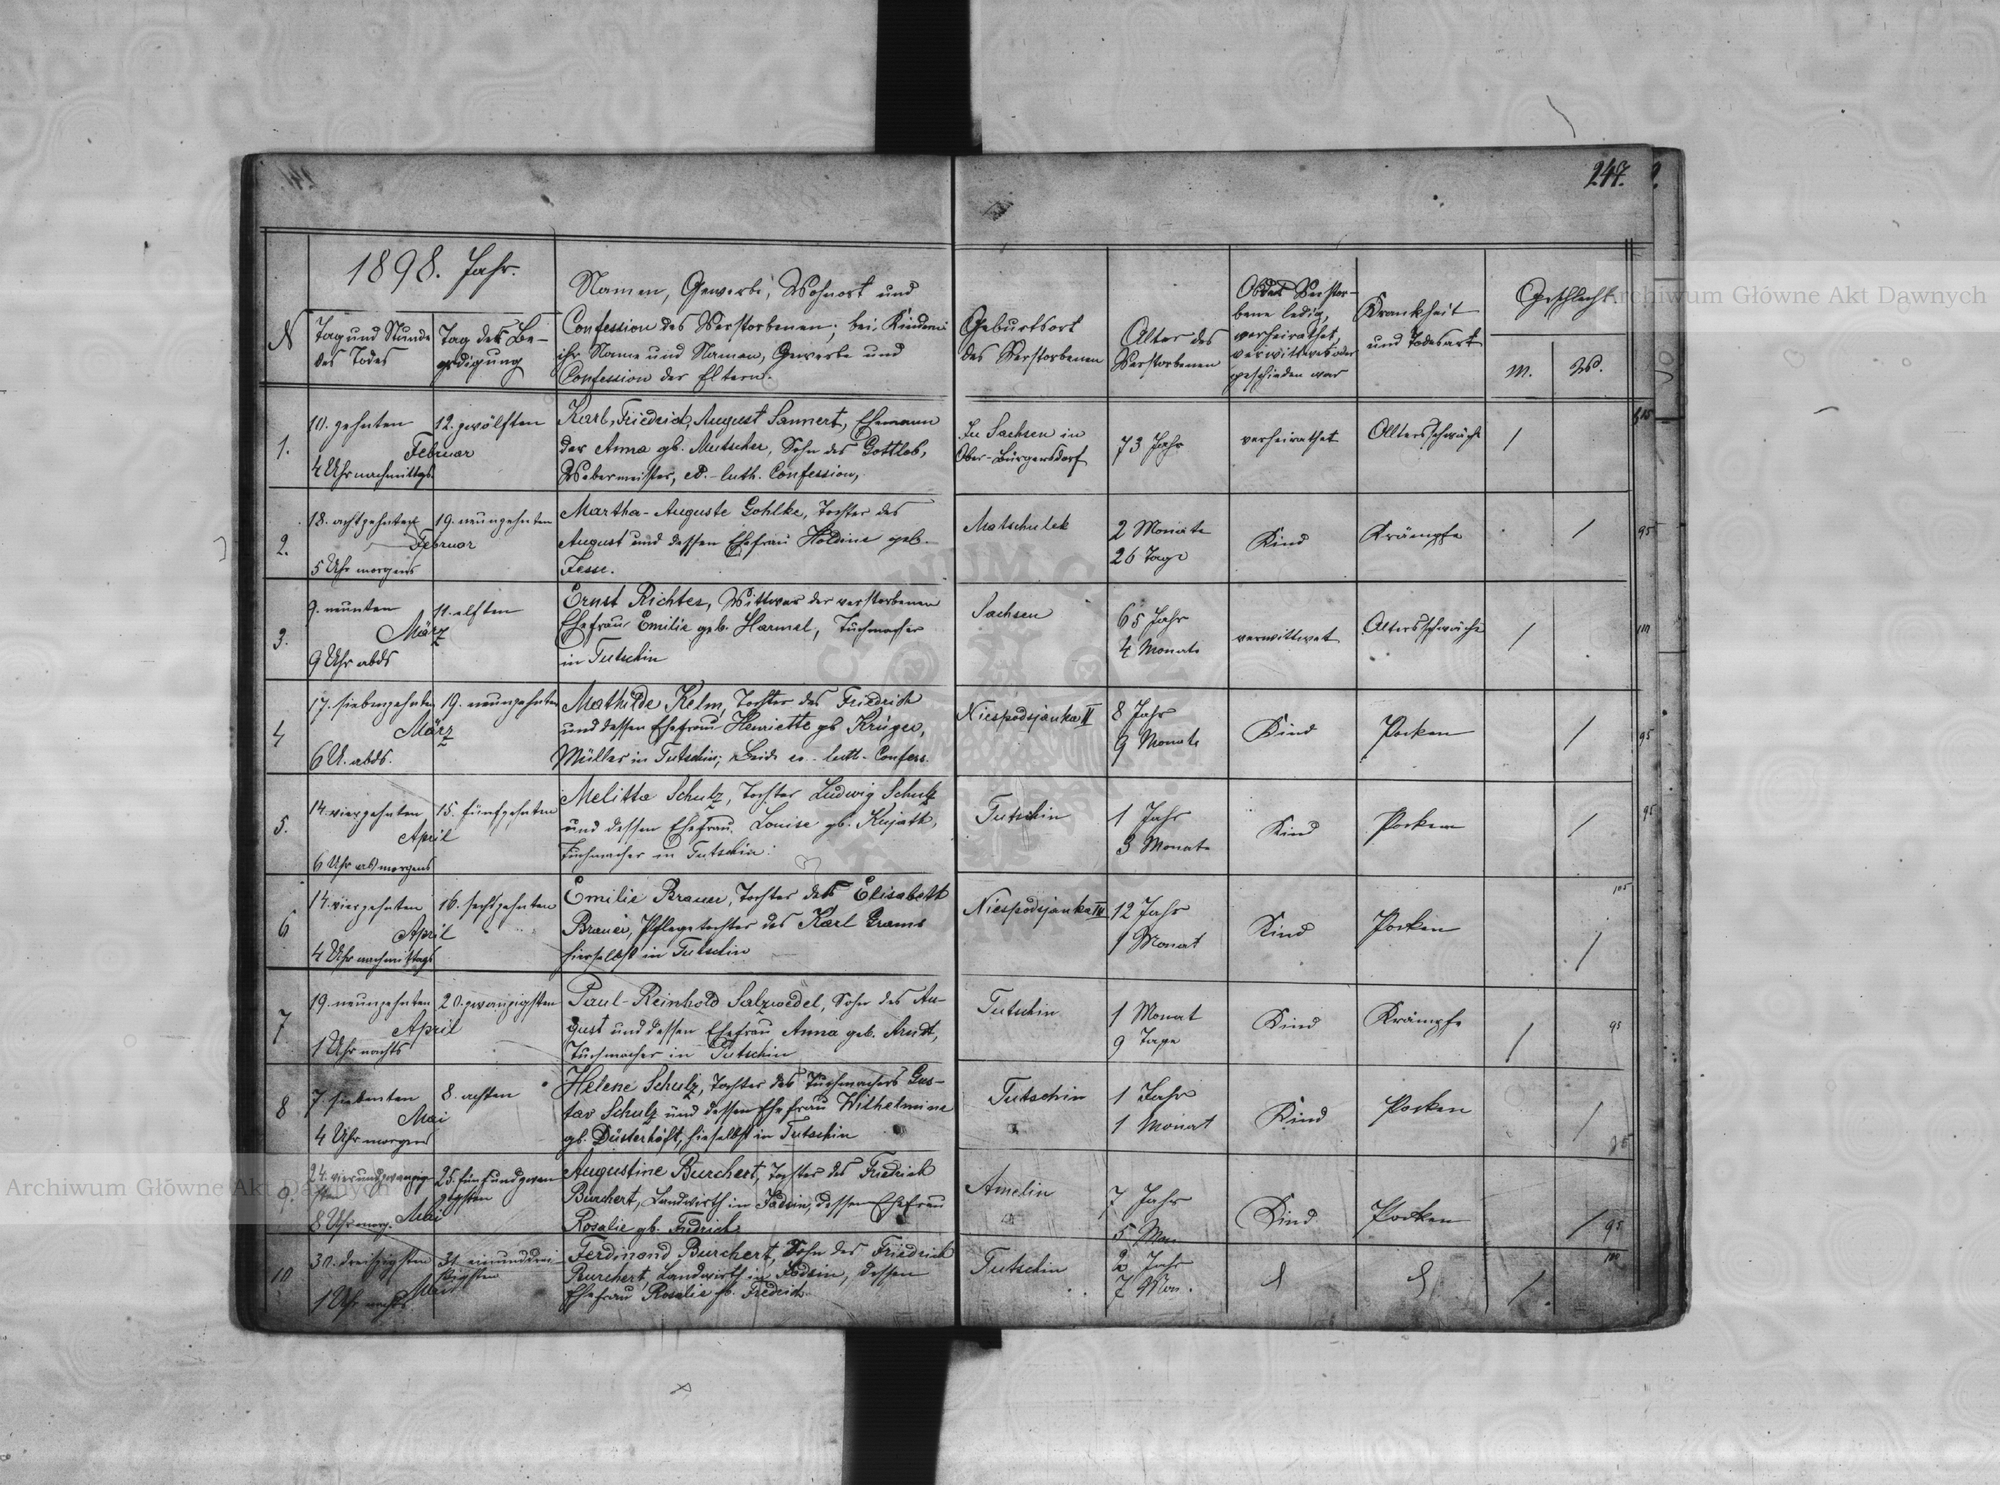 247.
1898. Jahr.
N
Tag und Stunde
des Todes
Tag der Be-
erdigung
Namen, Gewerbe, Wohnort und
Confession des Verstorbenen; bei Kindern
ihr Name und Namen, Gewerbe und
Confession der Eltern.
Geburtsort
des Verstorbenen
Alter des
Verstorbenen
Ob der Verstor-
bene ledig,
verheirathet,
verwittwet oder
geschieden war
Krankheit
und Todesart
Geschlecht
M.
W.
1.
10. zehnten
Februar
4 Uhr nachmittags
12. zwölften
Karl, Friedrich, August Sannert, Ehemann
der Anna gb. Mutscher, Sohn des Gottlob,
Webermeister, ev.-luth. Confession,
In Sachsen in
Ober-Bürgersdorf
73 Jahr
verheirathet
Altersschwäche
2.
18. achtzehnten
Februar
5 Uhr morgens
19. neunzehnten
Martha-Auguste Gohlke, Tochter des
August und dessen Ehefrau Holdine geb.
Jesse.
Matschulek
2 Monate
26 Tage
Kind
Krämpfe
95
3.
9. neunten
März
9 Uhr abds
11. elften
Ernst Richter, Wittwer der verstorbenen
Ehefrau Emilie geb. Harmel, Tuchmacher
in Tutschin
Sachsen
65 Jahr
4 Monate
verwittwet
Altersschwäche
4
17. siebenzehnten
März
6 U. abds.
19. neunzehnten
Mathilde Kelm, Tochter des Friedrich
und dessen Ehefrau Henriette gb Krüger,
Müller in Tutschin; Beide ev.-luth. Confess.
Niespodsjanka II
8 Jahr
9 Monate
Kind
Pocken
95
5.
14. vierzehnten
April
6 Uhr morgens
15. fünfzehnten
Melitta Schulz, Tochter Ludwig Schulz
und dessen Ehefrau Louise gb. Kujath,
Tuchmacher in Tutschin.
Tutschin
1 Jahr
3 Monate
Kind
Pocken
95
6
14. vierzehnten
April
4 Uhr nachmittags
16. sechszehnten
Emilie Brauer, Tochter der Elisabeth
Brauer, Pflegetochter des Karl Grams
hierselbst in Tutschin
Niespodsjanka
12 Jahr
1 Monat
Kind
Pocken
7
19. neunzehnten
April
1 Uhr nachts
20. zwanzigsten
Paul-Reinhold Salzwedel, Sohn des Au-
gust und dessen Ehefrau Anna geb. Arndt,
Tuchmacher in Tutschin
Tutschin
1 Monat
9 Tage
Kind
Krämpfe
95
8
7. siebenten
Mai
4 Uhr morgens
8. achten
Helene Schulz, Tochter des Tuchmachers Gus-
tav Schulz und dessen Ehefrau Wilhelmine
gb. Düsterhöft, hieselbst in Tutschin
Tutschin
1 Jahr
1 Monat
Kind
Pocken
9.
24. vierundzwanzig-
sten
Mai
8 Uhr morg.
25. fünfundzwan
zigsten
Augustine Burchert, Tochter des Friedrich
Burchert, Landwirth in Jadsin, dessen Ehefrau
Rosalie gb. Fredrich
Amelin
7 Jahr
5 Mon
Kind
Pocken
95
10
30. dreißigsten
Mai
1 Uhr nachts
31. einunddrei-
ßigsten
Ferdinand Burchert, Sohn des Friedrich
Burchert, Landwirth in Jadsin, dessen
Ehefrau Rosalie gb. Fredrich
Tutschin
2 Jahr
7 Mon.
Archiwum Główne Akt Dawnych
Archiwum Główne Akt Dawnych